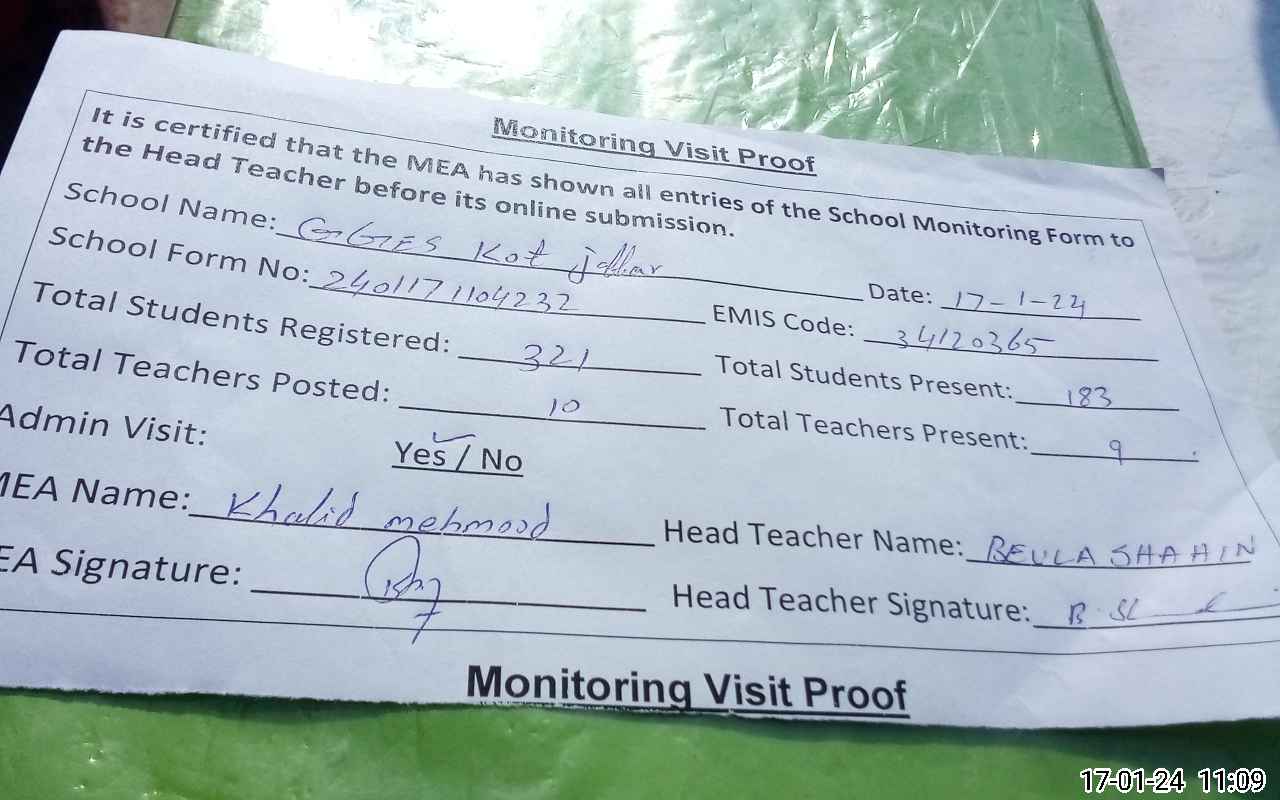 Monitoring Visit Proof
It is certified that the MEA has shown all entries of the School Monitoring Form to
the Head Teacher before its online submission.
School Name: GGES Kot jaffar Date: 17-1-24
School Form No: 2401171104232 EMIS Code: 34120365
Total Students Registered: 321 Total Students Present: 183
Total Teachers Posted: 10 Total Teachers Present: 9
Admin Visit: Yes / No
MEA Name: Khalid mehmood Head Teacher Name: BEULA SHAHIN
EA Signature: Head Teacher Signature:
Monitoring Visit Proof
17-01-24 11:09